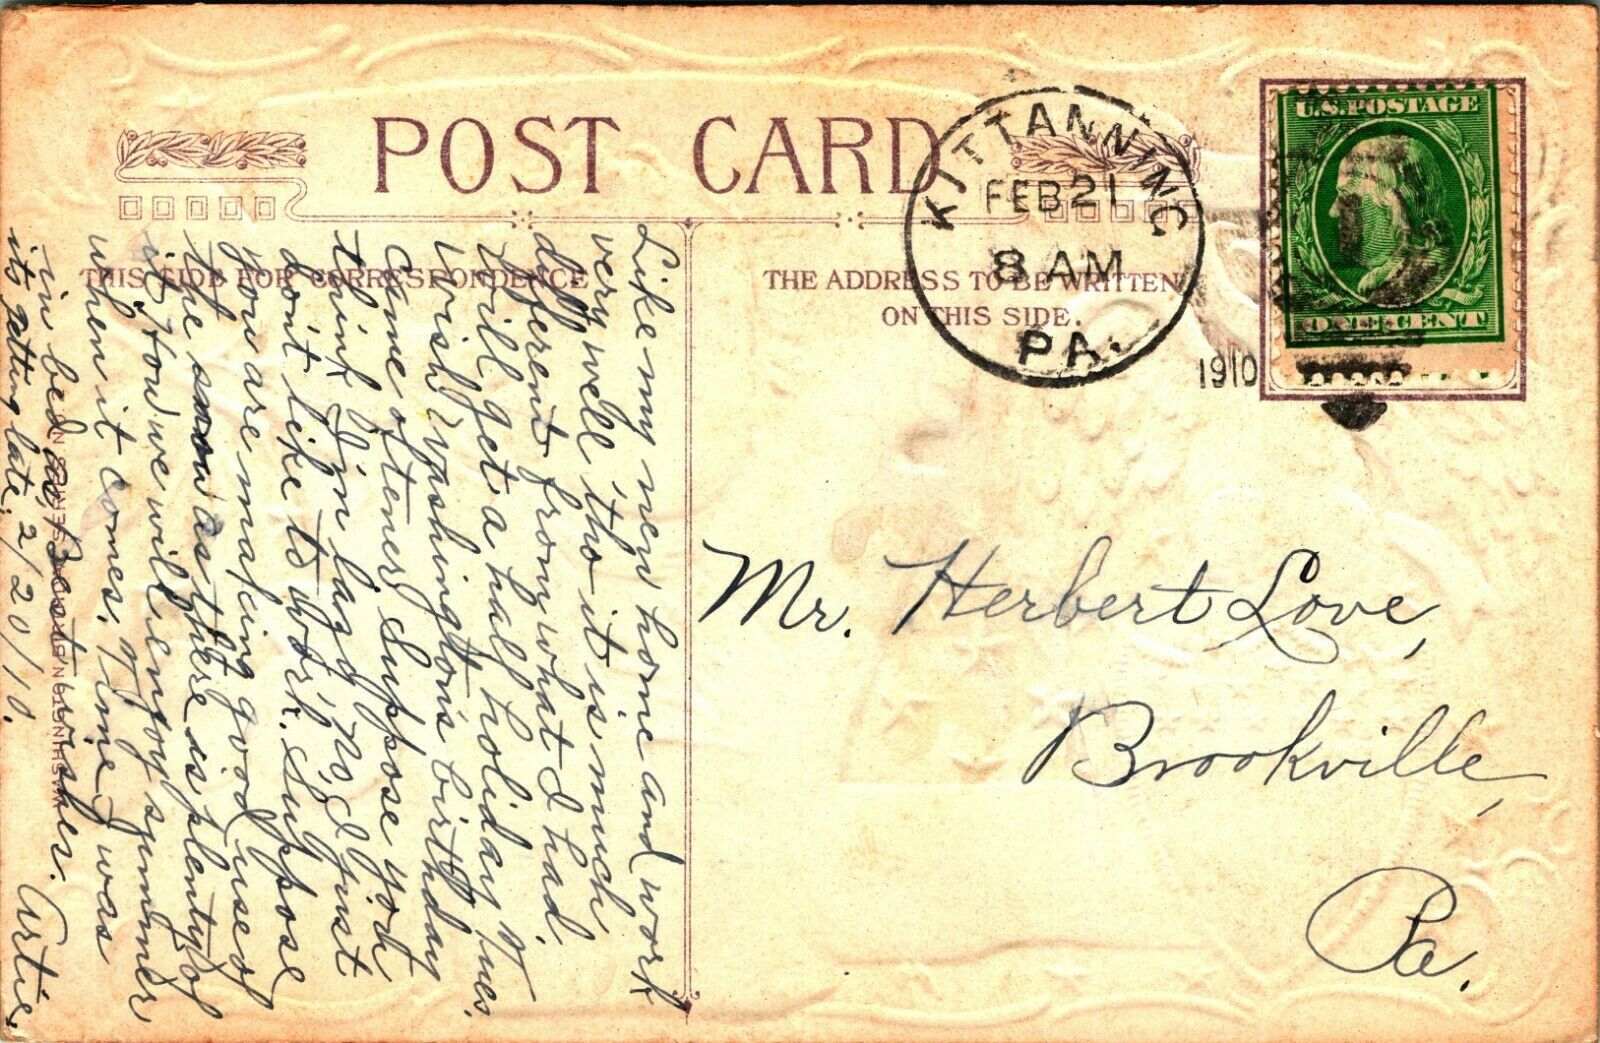 POST CARD
THIS SIDE FOR CORRESPONDENCE
THE ADDRESS TO BE WRITTEN
ON THIS SIDE.
KITTANNING
FEB 21
8 AM
PA.
1910
U.S. POSTAGE
ONE CENT
Like my new home and work
very well tho it is much
different from what I had.
Will get a half holiday Tues.
Wish Washington's birthday
came oftener. Suppose you
think I'm lazy. No, I just
don't like to work. Suppose
you are making good use of
the snow as there is plenty of
it. How we will enjoy summer
when it comes. Time I was
in bed as Best wishes. Artie.
its getting late. 2/20/10.
Mr. Herbert Love,
Brookville,
Pa.
WASHINGTON'S SERIES N